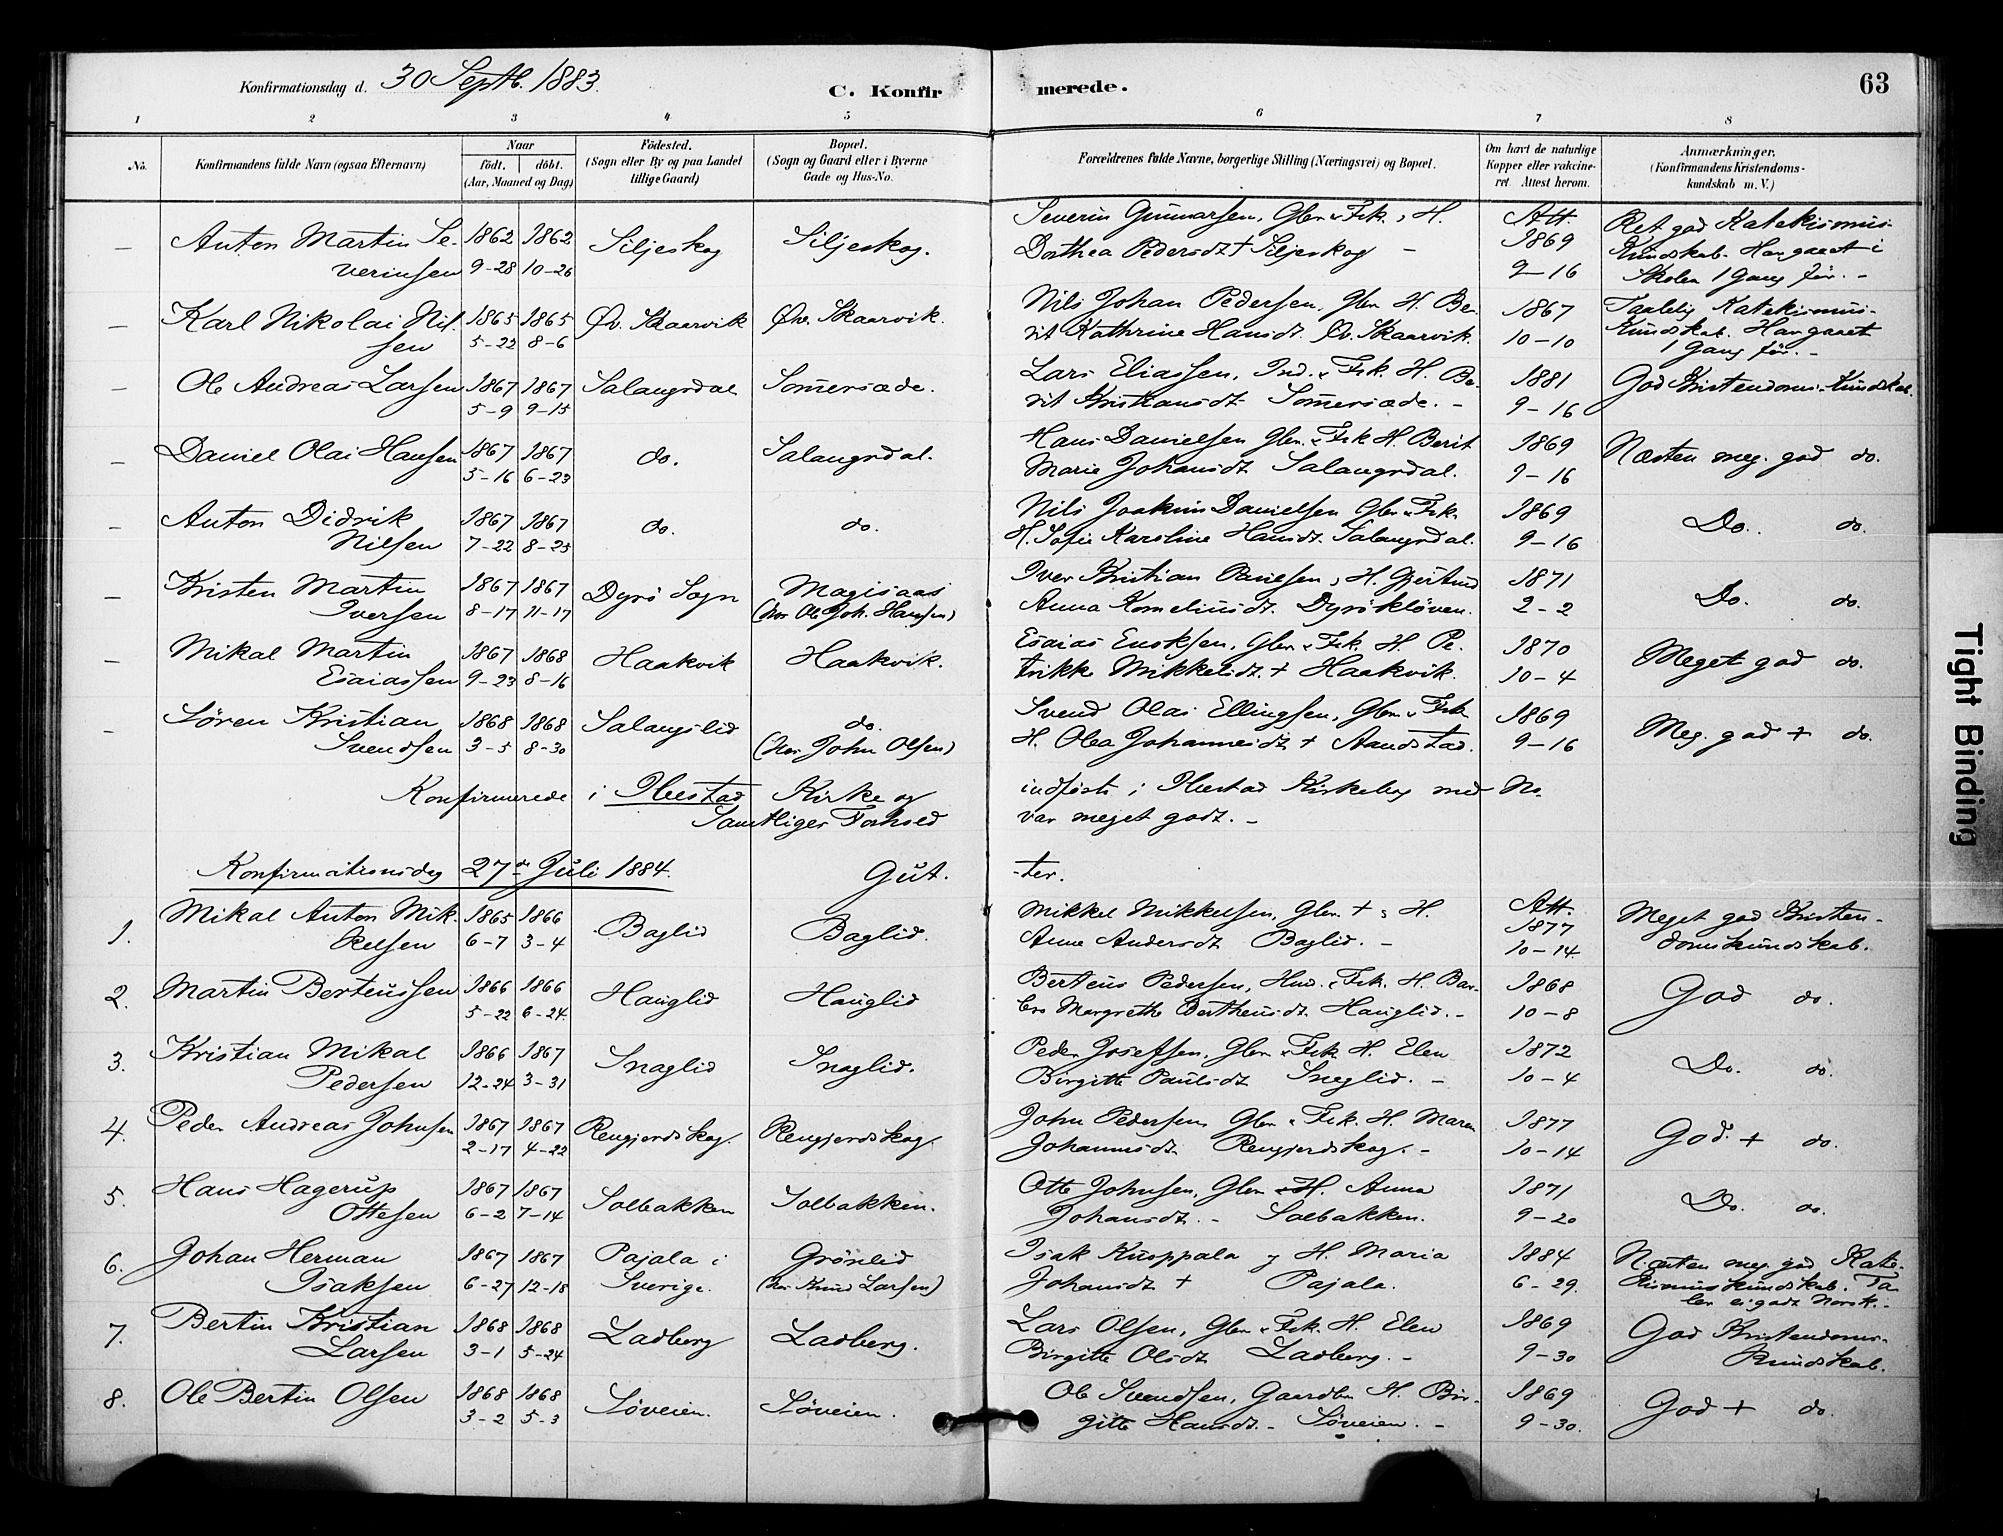 Konfirmationsdag d. 30 Septb. 1883.
C. Konfirmerede.
63
1 2 3 4 5 6 7 8
No.
Konfirmandens fulde Navn (ogsaa Efternavn)
Naar
födt. döbt.
(Aar, Maaned og Dag)
Födested.
(Sogn eller By og paa Landet
tillige Gaard)
Bopæl.
(Sogn og Gaard eller i Byerne
Gade og Hus-No.
Forældrenes fulde Navne, borgerlige Stilling (Næringsvei) og Bopæl.
Om havt de naturlige
Kopper eller vakcine-
ret. Attest herom.
Anmærkninger.
(Konfirmandens Kristendoms-
kundskab m. V.)
— Anton Martin Se- 1862 1862 Siljeskog Siljeskog. Severin Gunnarsen, Gbr. & Fsk. , H. Att. Ret god Katekismus-
verinsen 9-28 10-26 Dorthea Pedersdt + Siljeskog — 1869 Kundskab. Har gaaet i
9-16 Skolen 1 Gang før. -
— Karl Nikolai Nil- 1865 1865 Øv. Skaarvik Øv. Skaarvik. Nils Johan Pedersen, Gbr. H. Be- 1867 Taalelig Katekismus-
sen 5-22 8-6 rit Kathrine Hansdt. Øv. Skaarvik. 10-10 Kundskab. Har gaaet
1 Gang før. -
— Ole Andreas Larsen 1867 1867 Salangsdal Somersæde. Lars Eliassen, Ind. & Fsk. H. Be- 1881 God Kristendoms-Kundskab.
5-9 9-15 rit Kristiansdt Somersæde. - 9-16
— Daniel Olai Hansen 1867 1867 do. Salangsdal. Hans Danielsen Gbr. & Fsk H. Berit 1869 Næsten meg. god do.
5-16 6-23 Marie Johansdt. Salangsdal. 9-16
— Anton Didrik 1867 1867 do. do. Nils Joakim Danielsen Gbr. & Fsk. 1869 Do. do.
Nilsen 7-22 8-25 H. Sofie Karoline Hansdt. Salangsdal. 9-16
— Kristen Martin 1867 1867 Dyrö Sogn Magisaas Iver Kristian Paulsen , H. Gjertrud 1871 Do. do.
Iversen 8-17 11-17 (hos Ole Joh. Hansen) Anna Korneliusdt. Dyröklöven. 2-2
— Mikal Martin 1867 1868 Haakvik Haakvik. Esaias Enoksen, Gbr. & Fsk. H. Pe- 1870 Meget god do.
Esaiassen 9-23 8-16 trikke Mikkelsdt. + Haakvik. 10-4
— Sören Kristian 1868 1868 Salangslid do. Svend Olai Ellingsen, Gbr. & Fsk 1869 Meg. god + do.
Svendsen 3-5 8-30 (hos John Olsen) H. Olea Johannesdt + Aandstad. 9-16
Konfirmerede i Ibestad Kirke og indførte i Ibestad Kirkebog med No.
Samtliges Forhold var meget godt. -
Konfirmationsdag 27de Juli 1884. Gut- -ter.
1. Mikal Anton Mik- 1865 1866 Baglid Baglid. Mikkel Mikkelsen, Gbr. + , H. Att. Meget god Kristen-
kelsen 6-7 3-4 Anne Andersdt Baglid. - 1877 domskundskab.
10-14
2. Martin Berteussen 1866 1866 Hauglid Hauglid Berteus Pedersen, Hmd. & Fsk. H. Bar- 1868 God do.
5-22 6-24 bro Margrethe Bertheusdt. Hauglid. - 10-8
3. Kristian Mikal 1866 1867 Snaglid Snaglid. Peder Josefsen, Gbr. & Fsk. H. Elen 1872 Do. do.
Pedersen 12-24 3-31 Birgitte Paulsdt Sneglid. - 10-4
4. Peder Andreas Johnsen 1867 1867 Rengjerdskog. Rengjerdskog. John Pedersen Gbr. & Fsk. H. Maren 1877 God. + do.
2-17 4-22 Johannesdt. Rengjerdskog. - 10-14
5. Hans Hagerup 1867 1867 Solbakken Solbakken. Otte Johnsen, Gbr. & H. Anna 1871 Do. do.
Ottesen 6-2 7-14 Johansdt. - Solbakken. 9-20
6. Johan Herman 1867 1867 Pajala i Grönlid Isak Kuoppala og H. Maria 1884 Næsten meg. god Kate-
Isaksen 6-27 12-18 Sverige. (hos Knud Larsen) Johansdt + Pajala. 6-29. kismuskundskab. Ta-
ler ei godt Norsk. -
7. Bertin Kristian 1868 1868 Ladberg Ladberg. Lars Olsen, Gbr. & Fsk. H. Elen 1869 God Kristendoms-
Larsen 3-1 5-24 Birgitte Olsdt Ladberg. - 9-30 kundskab.
8. Ole Bertin Olsen 1868 1868 Löveien. Löveien. Ole Svendsen, Gaardbr. H. Bir- 1869 God + do.
3-2 5-3 gitte Hansdt. - Löveien. - 9-30.
Tight Binding